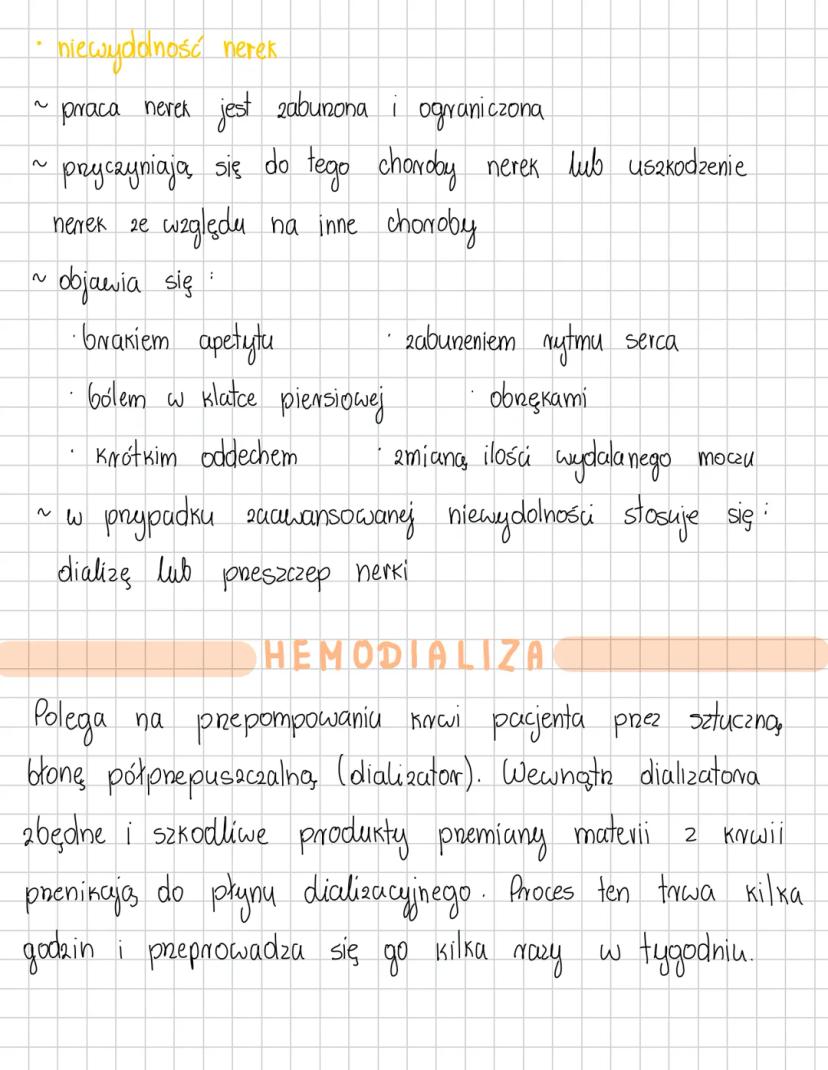 · niewydolność nerek
~ praca nerek jest zaburzona i ograniczona
~ przyczyniają się do tego choroby nerek lub uszkodzenie
nerek ze względu na inne choroby
~ objawia się :
· brakiem apetytu · zaburzeniem rytmu serca
· bólem w klatce piersiowej · obrzękami
· krótkim oddechem · zmianą ilości wydalanego moczu
~ w przypadku zaawansowanej niewydolności stosuje się :
dializę lub przeszczep nerki
HEMODIALIZA
Polega na przepompowaniu krwi pacjenta przez sztuczną
błonę półprzepuszczalną (dializator). Wewnątrz dializatora
zbędne i szkodliwe produkty przemiany materii z krwii
przenikają do płynu dializacyjnego. Proces ten trwa kilka
godzin i przeprowadza się go kilka razy w tygodniu.